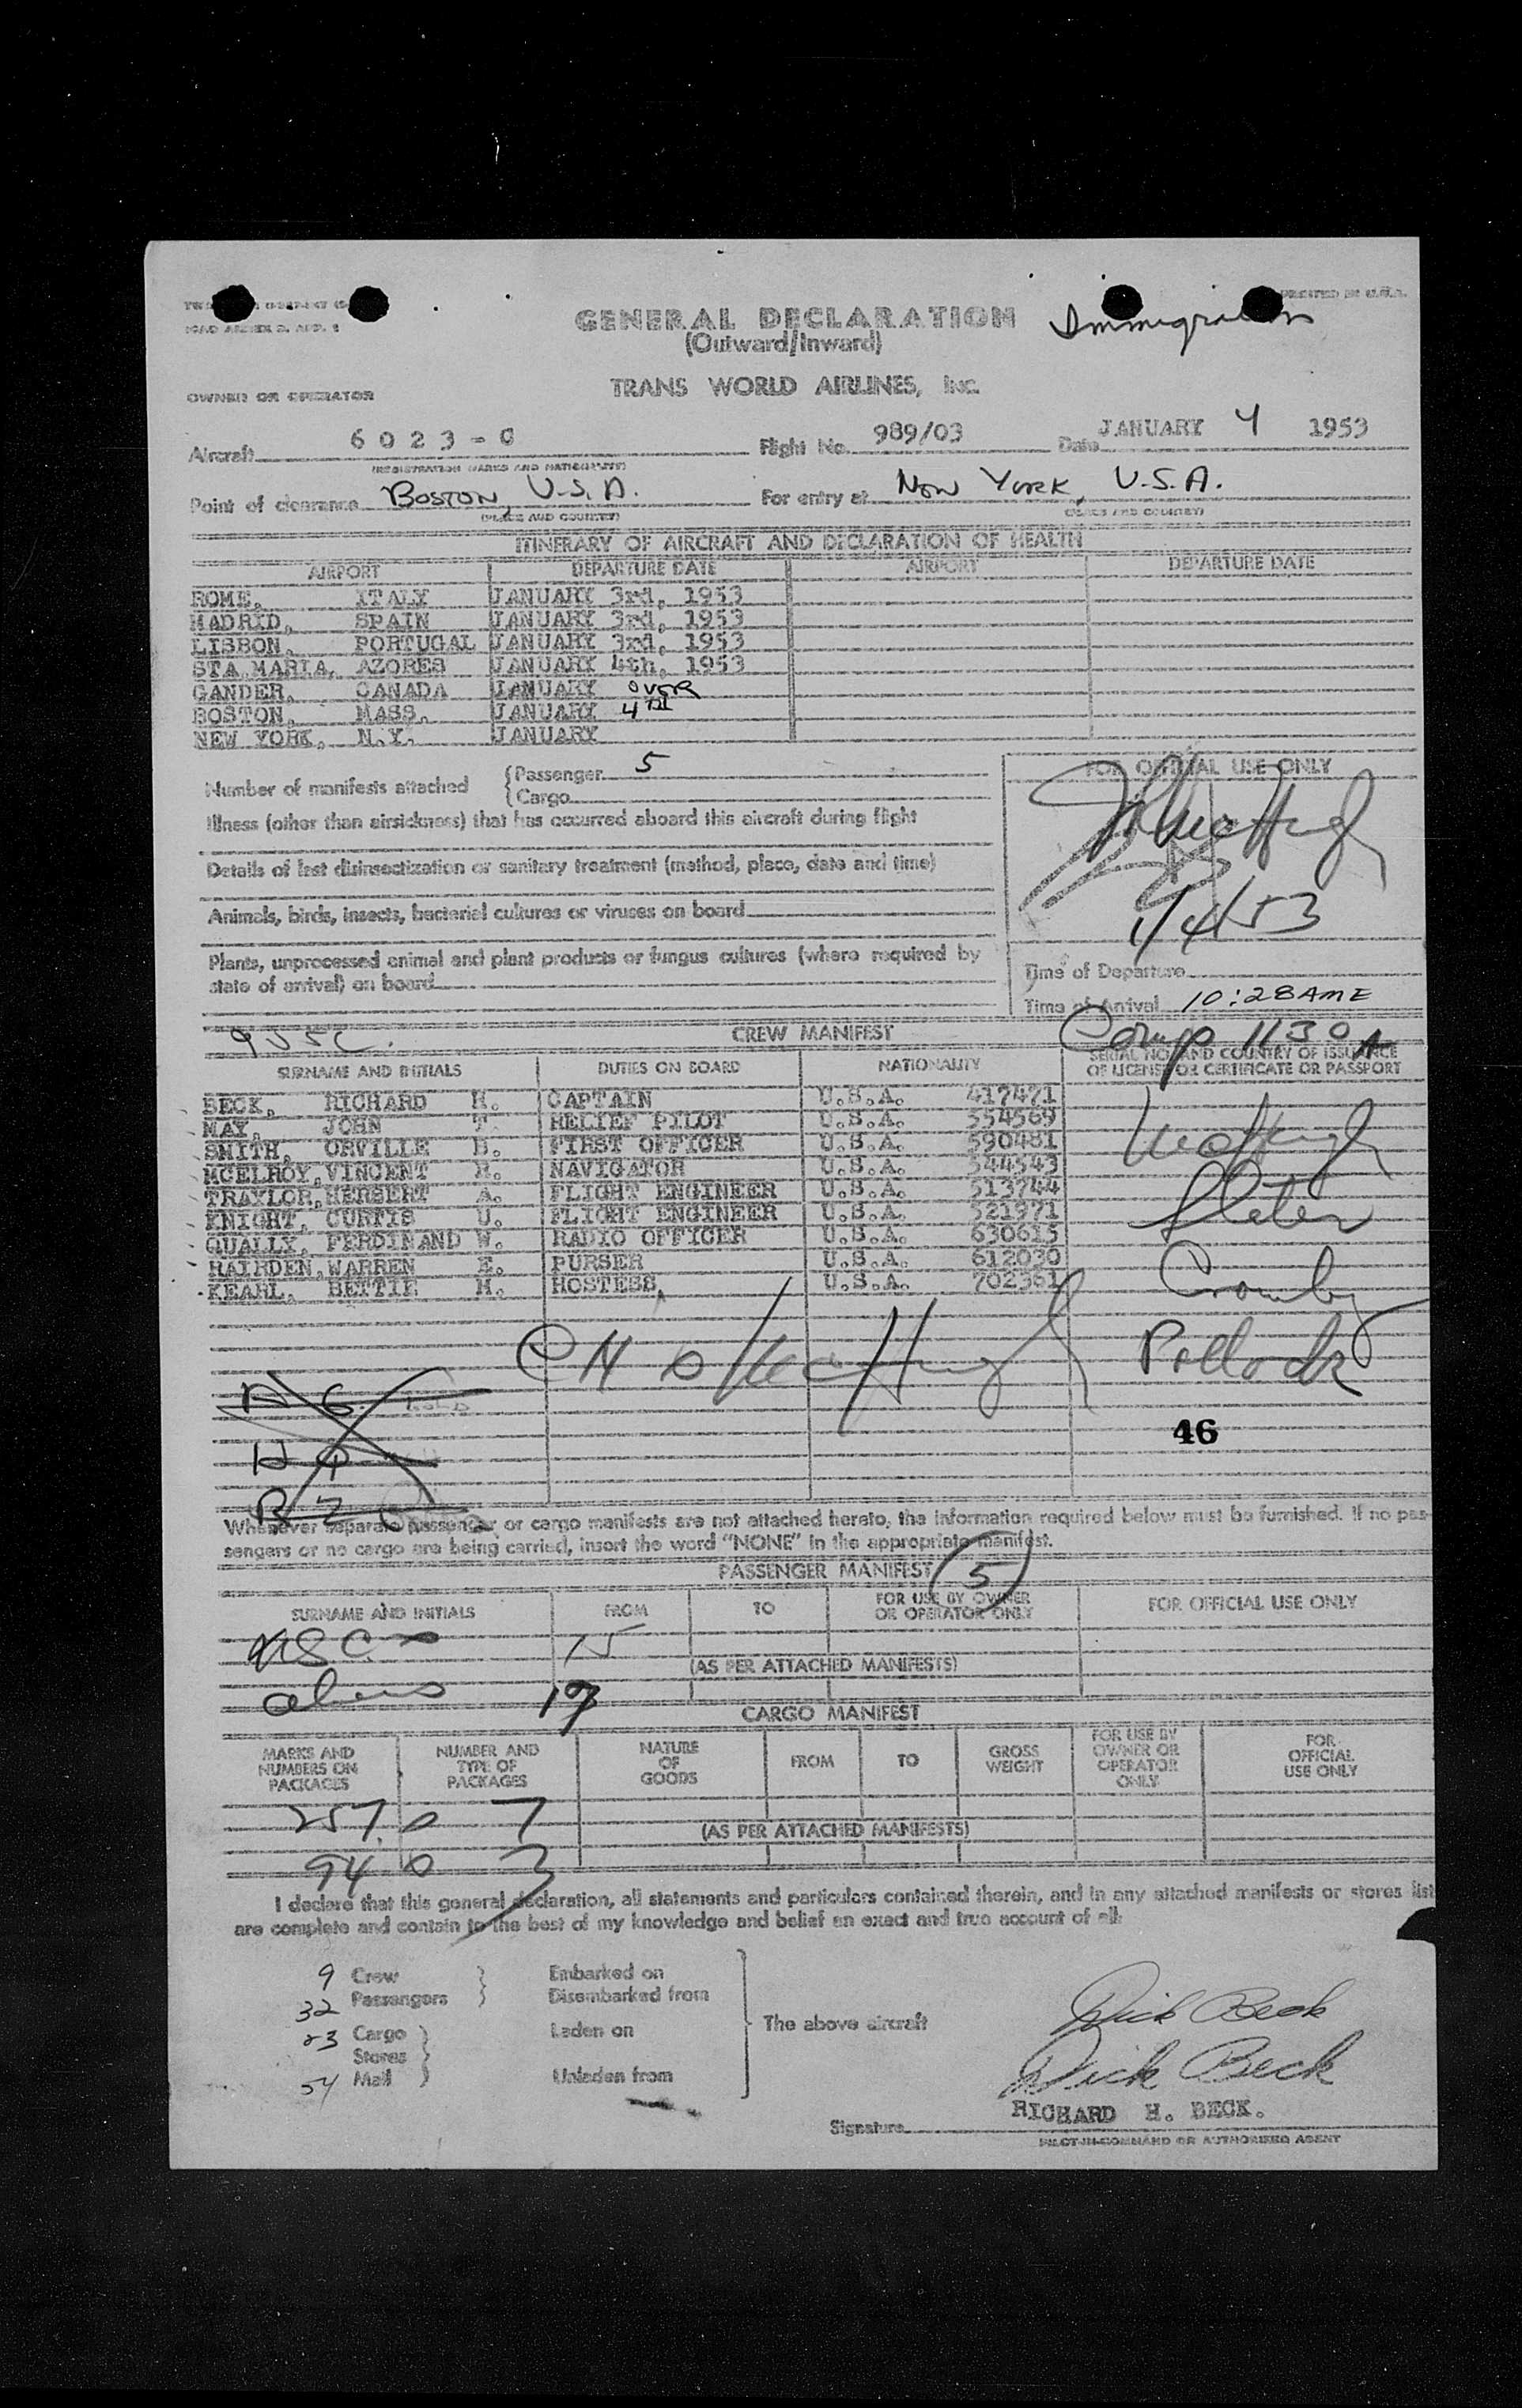 PRINTED IN U.S.A.
Immigration
GENERAL DECLARATION
(Outward/Inward)
TRANS WORLD AIRLINES, Inc.
OWNER OR OPERATOR
Aircraft 6023-C Flight No. 989/03 Date JANUARY 4 1953
(REGISTRATION MARKS AND NATIONALITY)
Point of clearance BOSTON, U.S.A. For entry at NEW YORK, U.S.A.
(PLACE AND COUNTRY) (PLACE AND COUNTRY)
ITINERARY OF AIRCRAFT AND DECLARATION OF HEALTH
AIRPORT DEPARTURE DATE AIRPORT DEPARTURE DATE
ROME, ITALY JANUARY 3rd, 1953
MADRID, SPAIN JANUARY 3rd, 1953
LISBON, PORTUGAL JANUARY 3rd, 1953
STA MARIA, AZORES JANUARY 4th, 1953
GANDER, CANADA JANUARY OVER
BOSTON, MASS. JANUARY 4TH
NEW YORK, N.Y. JANUARY
Number of manifests attached {Passenger 5
{Cargo
FOR OFFICIAL USE ONLY
Illness (other than airsickness) that has occurred aboard this aircraft during flight
Details of last disinsectization or sanitary treatment (method, place, date and time)
Animals, birds, insects, bacterial cultures or viruses on board
1/4/53
Plants, unprocessed animal and plant products or fungus cultures (where required by
state of arrival) on board
Time of Departure
Time of Arrival 10:28 AME
CREW MANIFEST
Comp 1130A
SURNAME AND INITIALS DUTIES ON BOARD NATIONALITY SERIAL NO. AND COUNTRY OF ISSUANCE
OF LICENSE OR CERTIFICATE OR PASSPORT
BECK, RICHARD H. CAPTAIN U.S.A. 417471
MAY, JOHN T. RELIEF PILOT U.S.A. 554569
SMITH, ORVILLE B. FIRST OFFICER U.S.A. 590481
MCELROY, VINCENT R. NAVIGATOR U.S.A. 544543
TRAYLOR, HERBERT A. FLIGHT ENGINEER U.S.A. 513744
KNIGHT, CURTIS U. FLIGHT ENGINEER U.S.A. 521971
QUALLY, FERDINAND W. RADIO OFFICER U.S.A. 630615
HAIRDEN, WARREN E. PURSER U.S.A. 612030
KEARL, BETTIE M. HOSTESS U.S.A. 702361
Pollock
46
Whenever separate passenger or cargo manifests are not attached hereto, the information required below must be furnished. If no pas-
sengers or no cargo are being carried, insert the word "NONE" in the appropriate manifest.
PASSENGER MANIFEST 5
SURNAME AND INITIALS FROM TO FOR USE BY OWNER OR OPERATOR ONLY FOR OFFICIAL USE ONLY
USC 15
(AS PER ATTACHED MANIFESTS)
aliens 17
CARGO MANIFEST
MARKS AND NUMBERS ON PACKAGES NUMBER AND TYPE OF PACKAGES NATURE OF GOODS FROM TO GROSS WEIGHT FOR USE BY OWNER OR OPERATOR ONLY FOR OFFICIAL USE ONLY
(AS PER ATTACHED MANIFESTS)
I declare that this general declaration, all statements and particulars contained therein, and in any attached manifests or stores list
are complete and contain to the best of my knowledge and belief an exact and true account of all:
9 Crew Embarked on
32 Passengers Disembarked from
23 Cargo Laden on The above aircraft
Stores
54 Mail Unladen from
Dick Beck
Dick Beck
RICHARD H. BECK.
Signature
PILOT-IN-COMMAND OR AUTHORISED AGENT